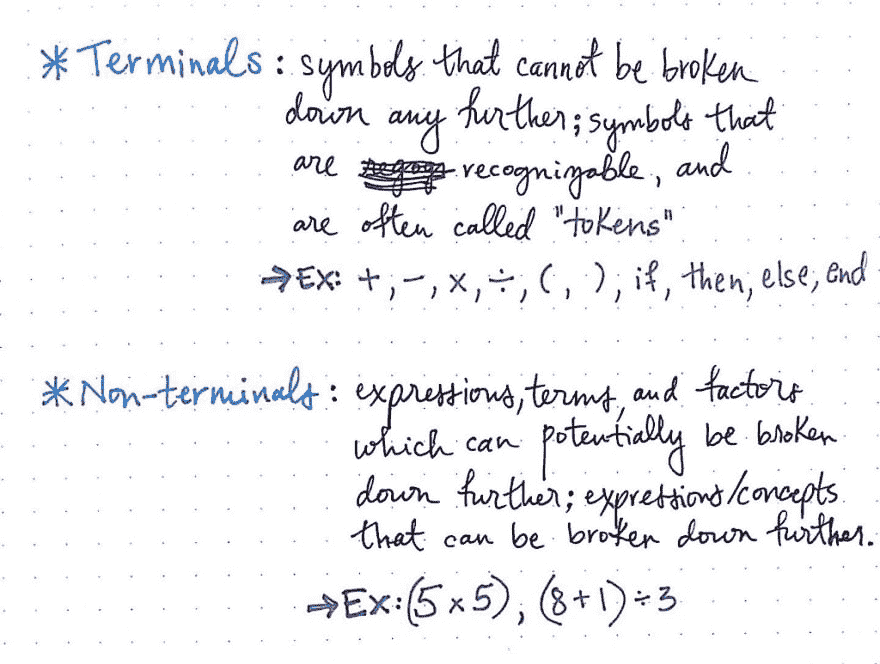 * Terminals: symbols that cannot be broken
down any further; symbols that
are recognizable, and
are often called "tokens"
→ EX: +, −, x, ÷, (, ), if, then, else, end
* Non-terminals: expressions, terms, and factors
which can potentially be broken
down further; expressions/concepts
that can be broken down further.
→ EX: (5 x 5), (8+1) ÷ 3